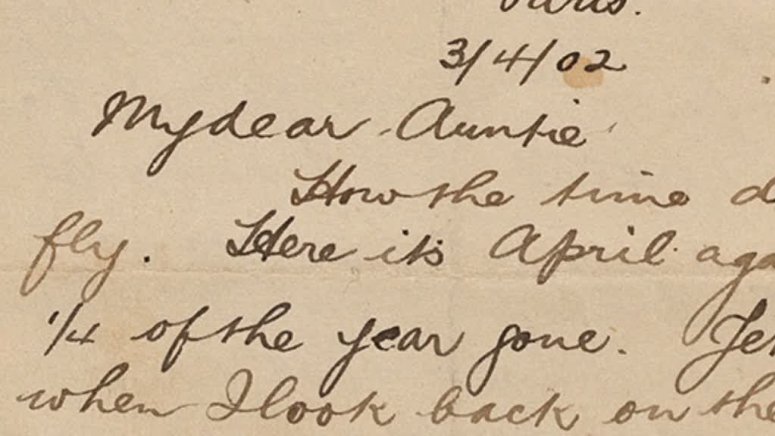 3/4/02
My dear Auntie
How the time d
fly. Here it's April aga
1/4 of the year gone. Yet
when I look back on the